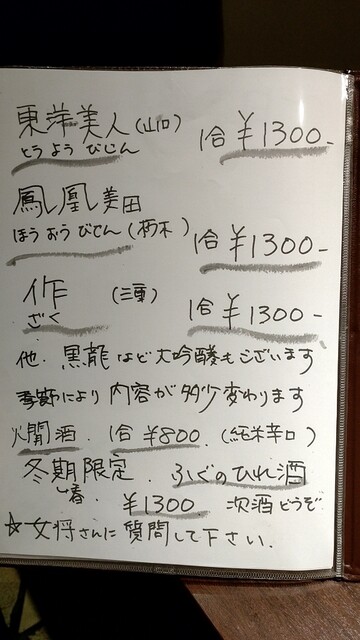 東洋美人(山口)
とうようびじん 1合 ¥1300-
鳳凰美田
ほうおうびでん(栃木) 1合 ¥1300-
作 (三重)
ざく 1合 ¥1300-
他、黒龍など大吟醸もございます
季節により内容が多少変わります
燗酒、1合 ¥800、(純米辛口)
冬期限定、ふぐのひれ酒
春、¥1300 次酒どうぞ
☆女将さんに質問して下さい.